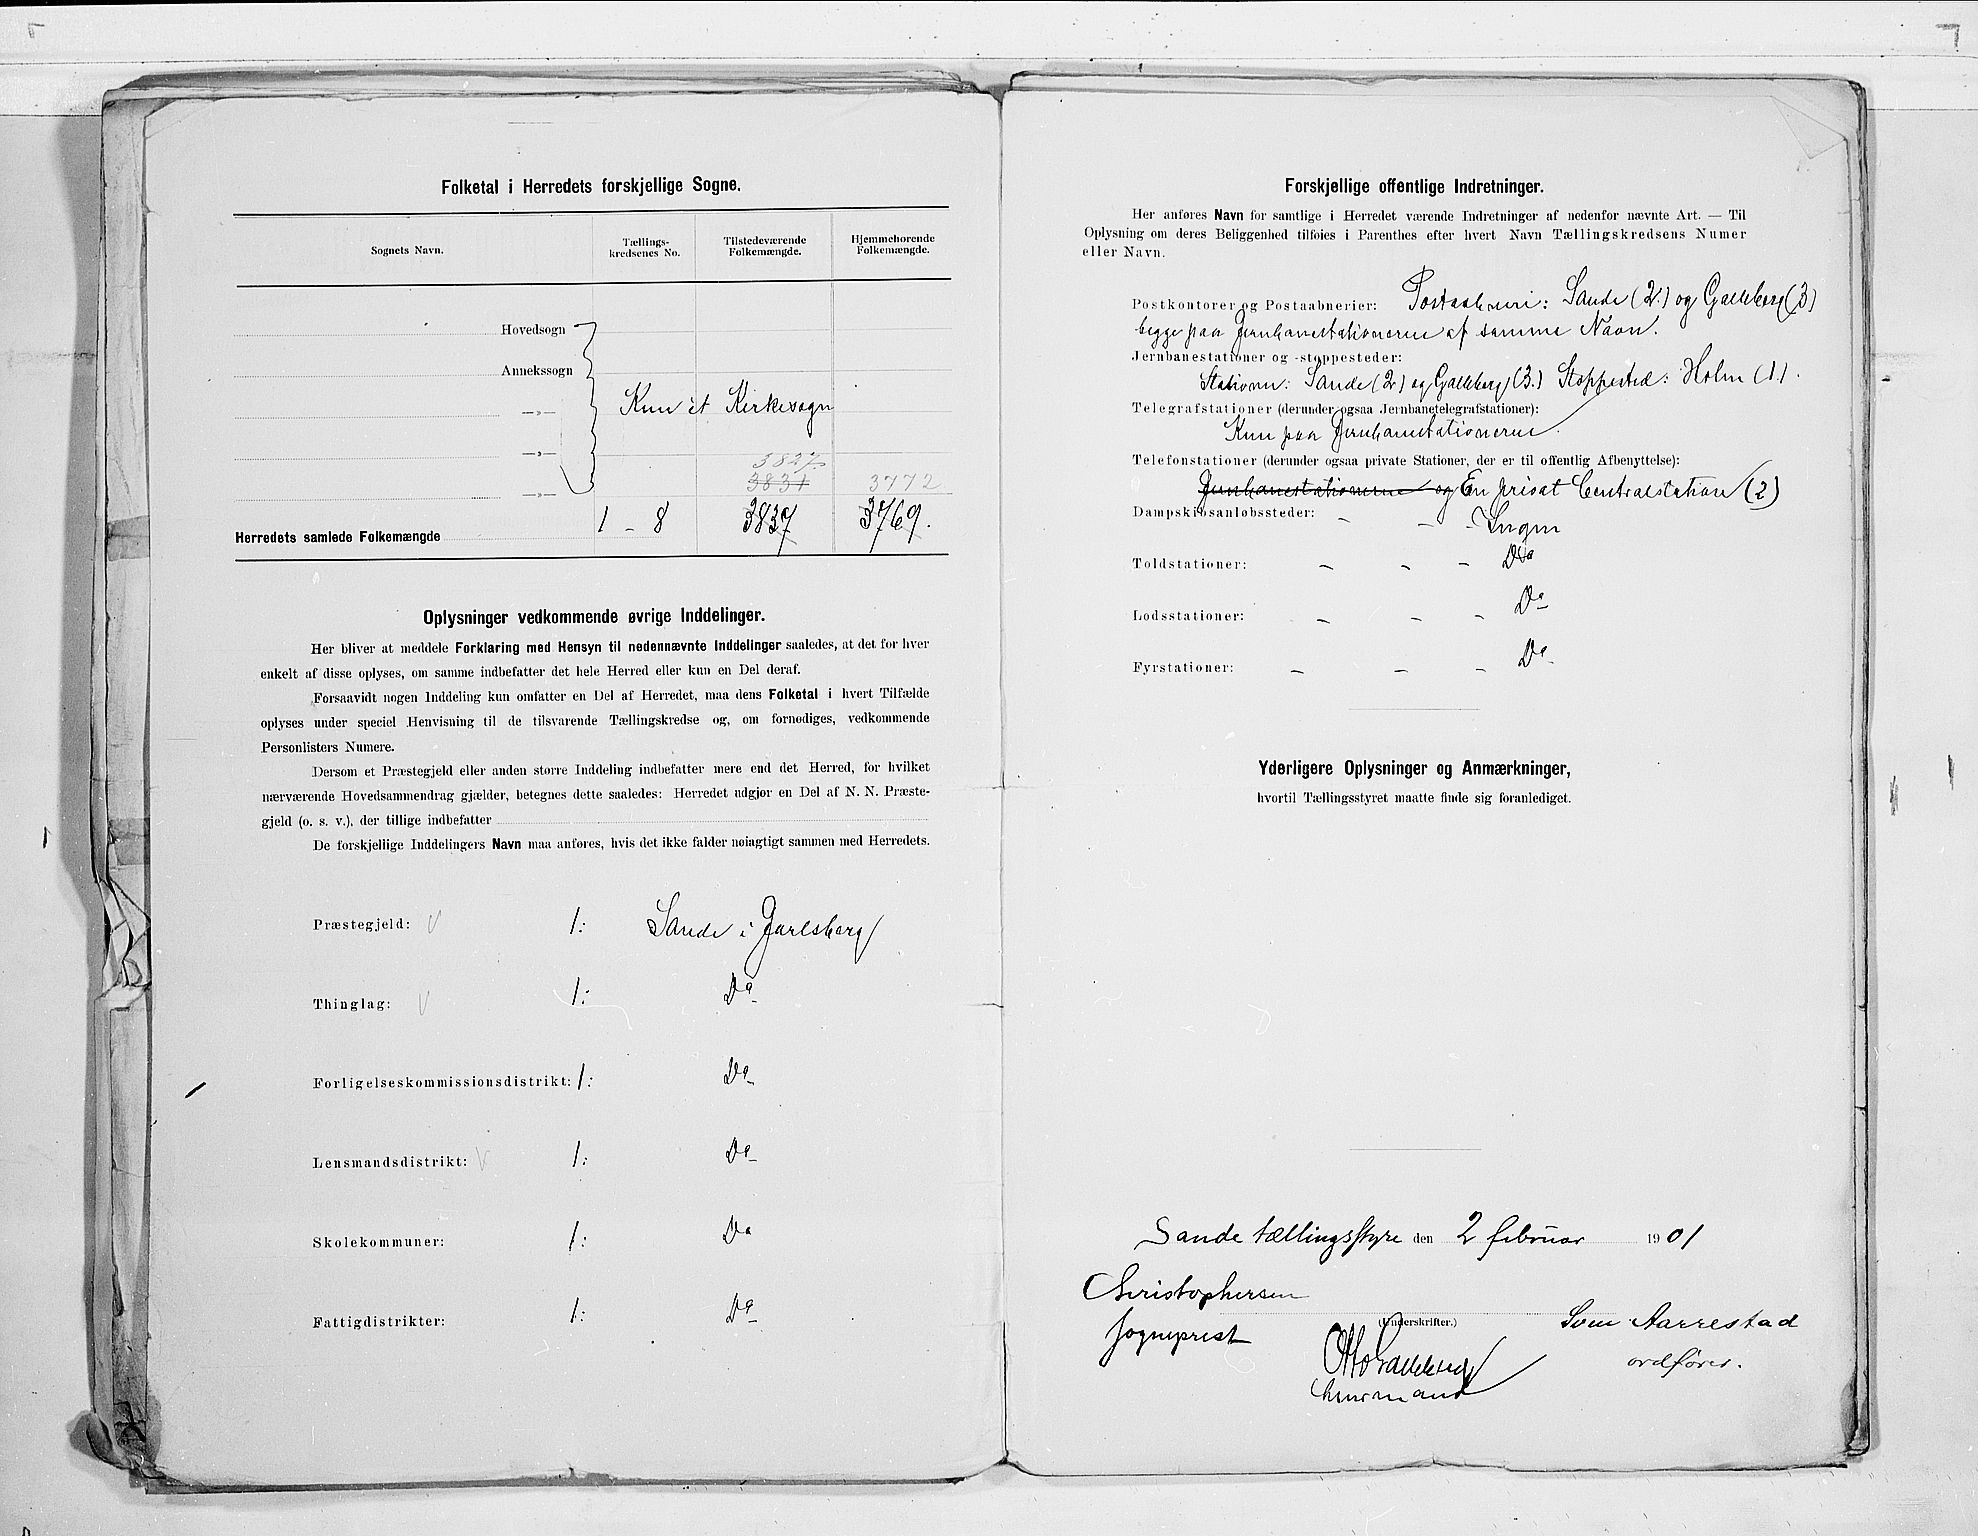 Folketal i Herredets forskjellige Sogne.
Sognets Navn.
Tællings-
kredsenes No.
Tilstedeværende
Folkemængde.
Hjemmehørende
Folkemængde.
Hovedsogn
Annekssogn
—»—
Kun ét Kirkesogn
—»—
3827
3831
3772
—»—
Herredets samlede Folkemængde 1 - 8 3837 3769.
Oplysninger vedkommende øvrige Inddelinger.
Her bliver at meddele Forklaring med Hensyn til nedennævnte Inddelinger saaledes, at det for hver
enkelt af disse oplyses, om samme indbefatter det hele Herred eller kun en Del deraf.
Forsaavidt nogen Inddeling kun omfatter en Del af Herredet, maa dens Folketal i hvert Tilfælde
oplyses under speciel Henvisning til de tilsvarende Tællingskredse og, om fornødiges, vedkommende
Personlisters Numere.
Dersom et Præstegjeld eller anden større Inddeling indbefatter mere end det Herred, for hvilket
nærværende Hovedsammendrag gjælder, betegnes dette saaledes: Herredet udgjør en Del af N. N. Præste-
gjeld (o. s. v.), der tillige indbefatter
De forskjellige Inddelingers Navn maa anføres, hvis det ikke falder nøiagtigt sammen med Herredets.
Præstegjeld: 1: Sande i Jarlsberg
Thinglag: 1: Do
Forligelseskommissionsdistrikt: 1: Do
Lensmandsdistrikt: 1: Do
Skolekommuner: 1: Do
Fattigdistrikter: 1: Do
Forskjellige offentlige Indretninger.
Her anføres Navn for samtlige i Herredet værende Indretninger af nedenfor nævnte Art. — Til
Oplysning om deres Beliggenhed tilføies i Parenthes efter hvert Navn Tællingskredsens Numer
eller Navn.
Postkontorer og Postaabnerier: Postaabneri: Sande (2) og Galleberg (3)
begge paa Jernbanestationerne af samme Navn.
Jernbanestationer og -stoppesteder:
Stationer: Sande (2) og Galleberg (3.) Stoppested: Holm (1).
Telegrafstationer (derunder ogsaa Jernbanetelegrafstationer):
Kun paa Jernbanestationerne.
Telefonstationer (derunder ogsaa private Stationer, der er til offentlig Afbenyttelse):
Jernbanestationerne og En privat Centralstation (2)
Dampskibsanløbssteder: - - - Ingen
Toldstationer: - - - Do
Lodsstationer: - - - Do
Fyrstationer: - - - Do
Yderligere Oplysninger og Anmærkninger,
hvortil Tællingsstyret maatte finde sig foranlediget.
Sande tællingsstyre den 2 februar 1901
Christophersen
(Underskrifter.)
Sven Aarrestad
sogneprest
Otto Galleberg
ordfører.
lensmand